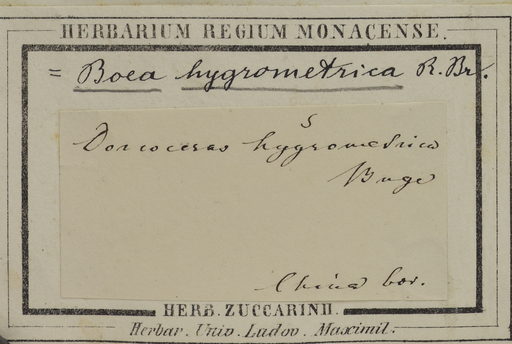 HERBARIUM REGIUM MONACENSE.
= Boea hygrometrica R. Br.
Dorcoceras hygrometrica
Bunge
China bor.
HERB. ZUCCARINII.
Herbar. Univ. Ludov. Maximil.